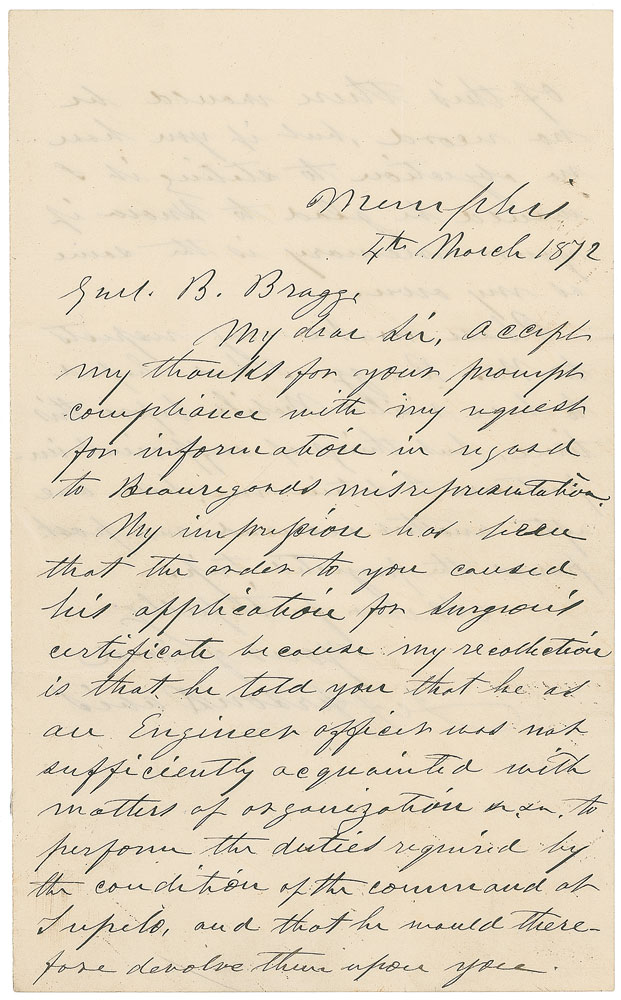 Memphis
4th March 1872
Genl. B. Bragg,
My dear Sir, Accept
my thanks for your prompt
compliance with my request
for information in regard
to Beauregards misrepresentation.
My impression had been
that the order to you caused
his application for Surgeon's
certificate because my recollection
is that he told you that he as
an Engineer officer was not
sufficiently acquainted with
matters of organization &c. &c. to
perform the duties required by
the condition of the command at
Tupelo, and that he would there-
fore devolve them upon you.